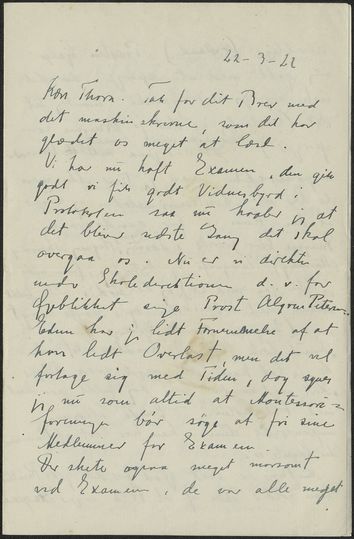 22-3-22
Kære Thora. Tak for dit Brev med
det maskinskrevne, som det har
glædet os meget at læse.
Vi har nu haft Examen, den gik
godt vi fik godt Vidnesbyrd i
Protokollen saa nu haaber jeg at
det bliver sidste Gang det skal
overgaa os. Nu er vi direkte
under Skoledirektionen d. v. for
Øjeblikket sige Provst
har jeg lidt Fornemmelse af at
have lidt Overlast, men det vil
fortage sig med Tiden, dog synes
jeg nu som altid at Montessori-
foreningen bør søge at fri sine
Medlemmer for Examen.
Der skete ogsaa meget morsomt
ved Examen, de var alle meget